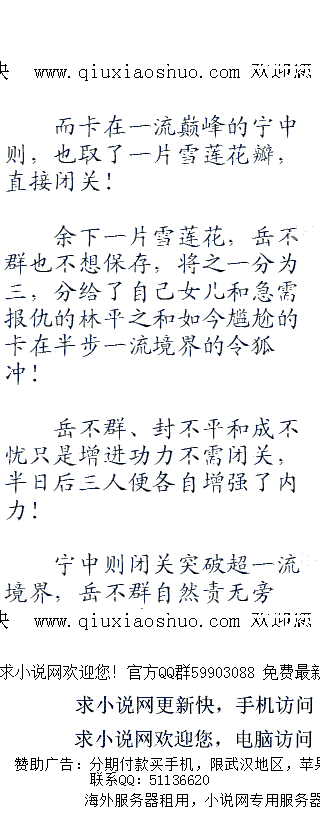 快 www.qiuxiaoshuo.com 欢迎您
而卡在一流巅峰的宁中
则，也取了一片雪莲花瓣，
直接闭关！
余下一片雪莲花，岳不
群也不想保存，将之一分为
三，分给了自己女儿和急需
报仇的林平之和如今尴尬的
卡在半步一流境界的令狐
冲！
岳不群、封不平和成不
忧只是增进功力不需闭关，
半日后三人便各自增强了内
力！
宁中则闭关突破超一流
境界，岳不群自然责无旁
快 www.qiuxiaoshuo.com 欢迎您
求小说网欢迎您！官方QQ群59903088 免费最新
求小说网更新快，手机访问
求小说网欢迎您，电脑访问
赞助广告：分期付款买手机，限武汉地区，苹果
联系QQ：51136620
海外服务器租用，小说网专用服务器